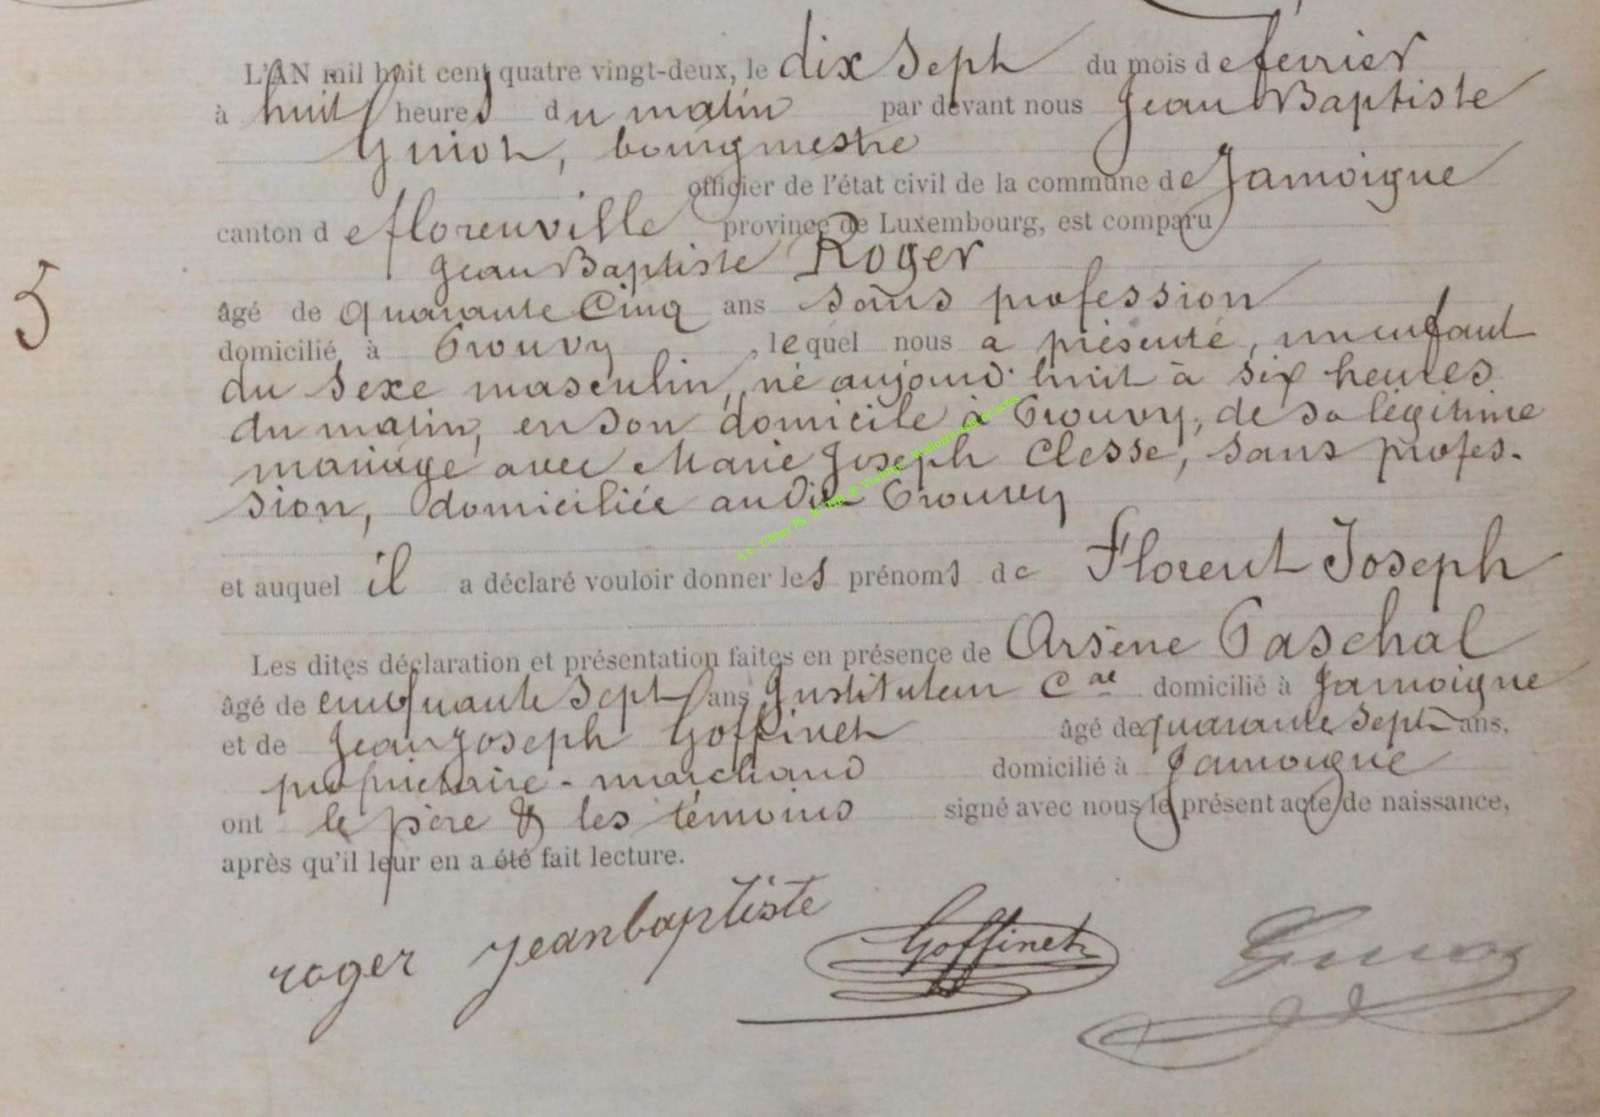 L'AN mil huit cent quatre vingt-deux, le dix sept du mois de fevrier
à huit heures du matin par devant nous Jean Baptiste
Guiot, bourgmestre
officier de l'état civil de la commune de Jamoigne
canton de florenville province de Luxembourg, est comparu
Jean Baptiste Roger
âgé de quarante cinq ans sans profession
domicilié à Prouvy, lequel nous a présenté, un enfant
5
du sexe masculin, né aujourd'huit à six heures
du matin, en son domicile à Prouvy, de sa légitime
mariage avec Marie Joseph Clesse, sans profes-
sion, domiciliée au dit Prouvy
et auquel il a déclaré vouloir donner les prénoms de Florent Joseph
Les dites déclaration et présentation faites en présence de Arsène Paschal
âgé de cinquante sept ans Instituteur Cal domicilié à Jamoigne
et de Jean Joseph Goffinet âgé de quarante sept ans,
propriétaire-marchand domicilié à Jamoigne
ont le père & les témoins signé avec nous le présent acte de naissance,
après qu'il leur en a été fait lecture.
roger jeanbaptiste Goffinet Guiot